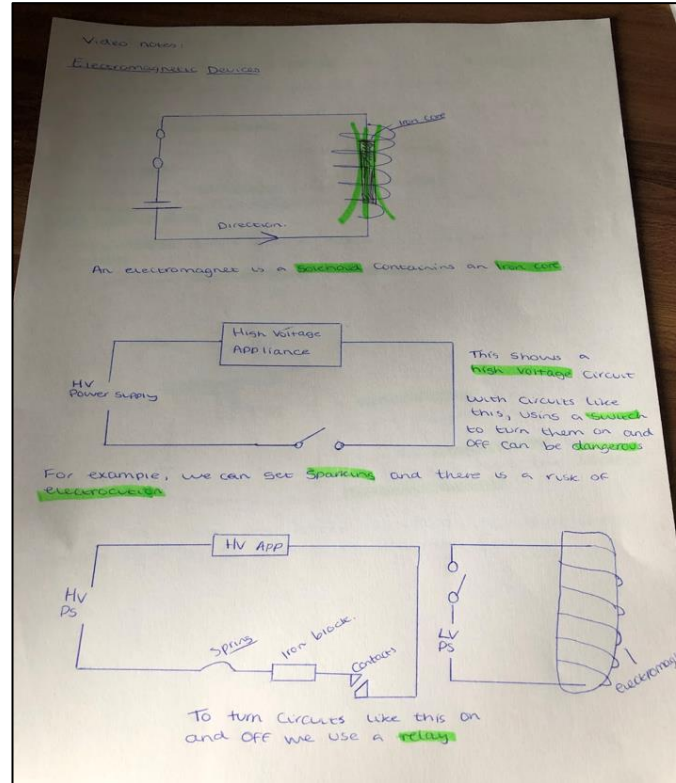 Video notes:
Electromagnetic Devices
Iron core
Direction.
An electromagnet is a solenoid containing an iron core
High Voltage
Appliance
HV
Power Supply
This shows a
high voltage circuit
With circuits like
this, using a switch
to turn them on and
OFF can be dangerous
For example, we can get sparking and there is a risk of
electrocution
HV APP
HV
PS
Spring
Iron block.
Contacts
LV
PS
electromag
To turn circuits like this on
and OFF we use a relay